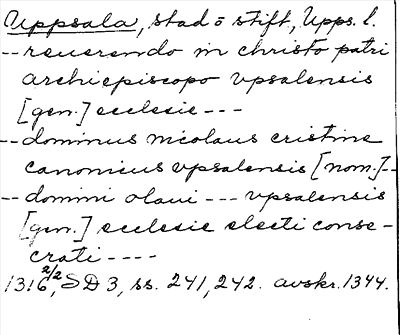 Uppsala, stad o stift, Upps. l.
-- reuerendo in christo patri
archiepiscopo vpsalensis
[gen.] ecclesie ---
-- dominus nicolaus cristine
canonicus vpsalensis [nom.] --
-- domini olaui --- vpsalensis
[gen.] ecclesie electi conse-
crati ----
1316 2/2, SD 3, ss. 241, 242. avskr. 1344.